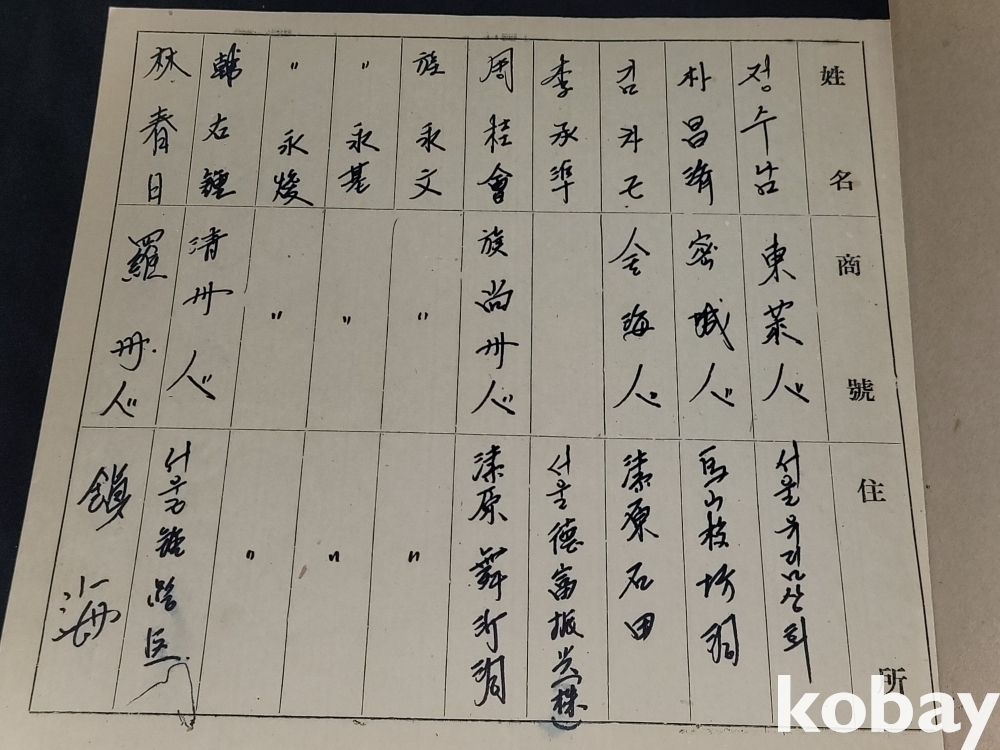 姓名 商號 住所
정수남 東萊人 서울유림산회
朴昌濟 密城人 馬山校坊洞
김차근 金海人 漆原石田
李承準 서울德富振興(株)
周桂會 族尙州人 漆原舞沂洞
族永文 〃 〃
〃永基 〃 〃
〃永燮 〃 〃
韓右鍾 淸州人 서울鍾路區
林春日 羅州人 鎭海
kobay